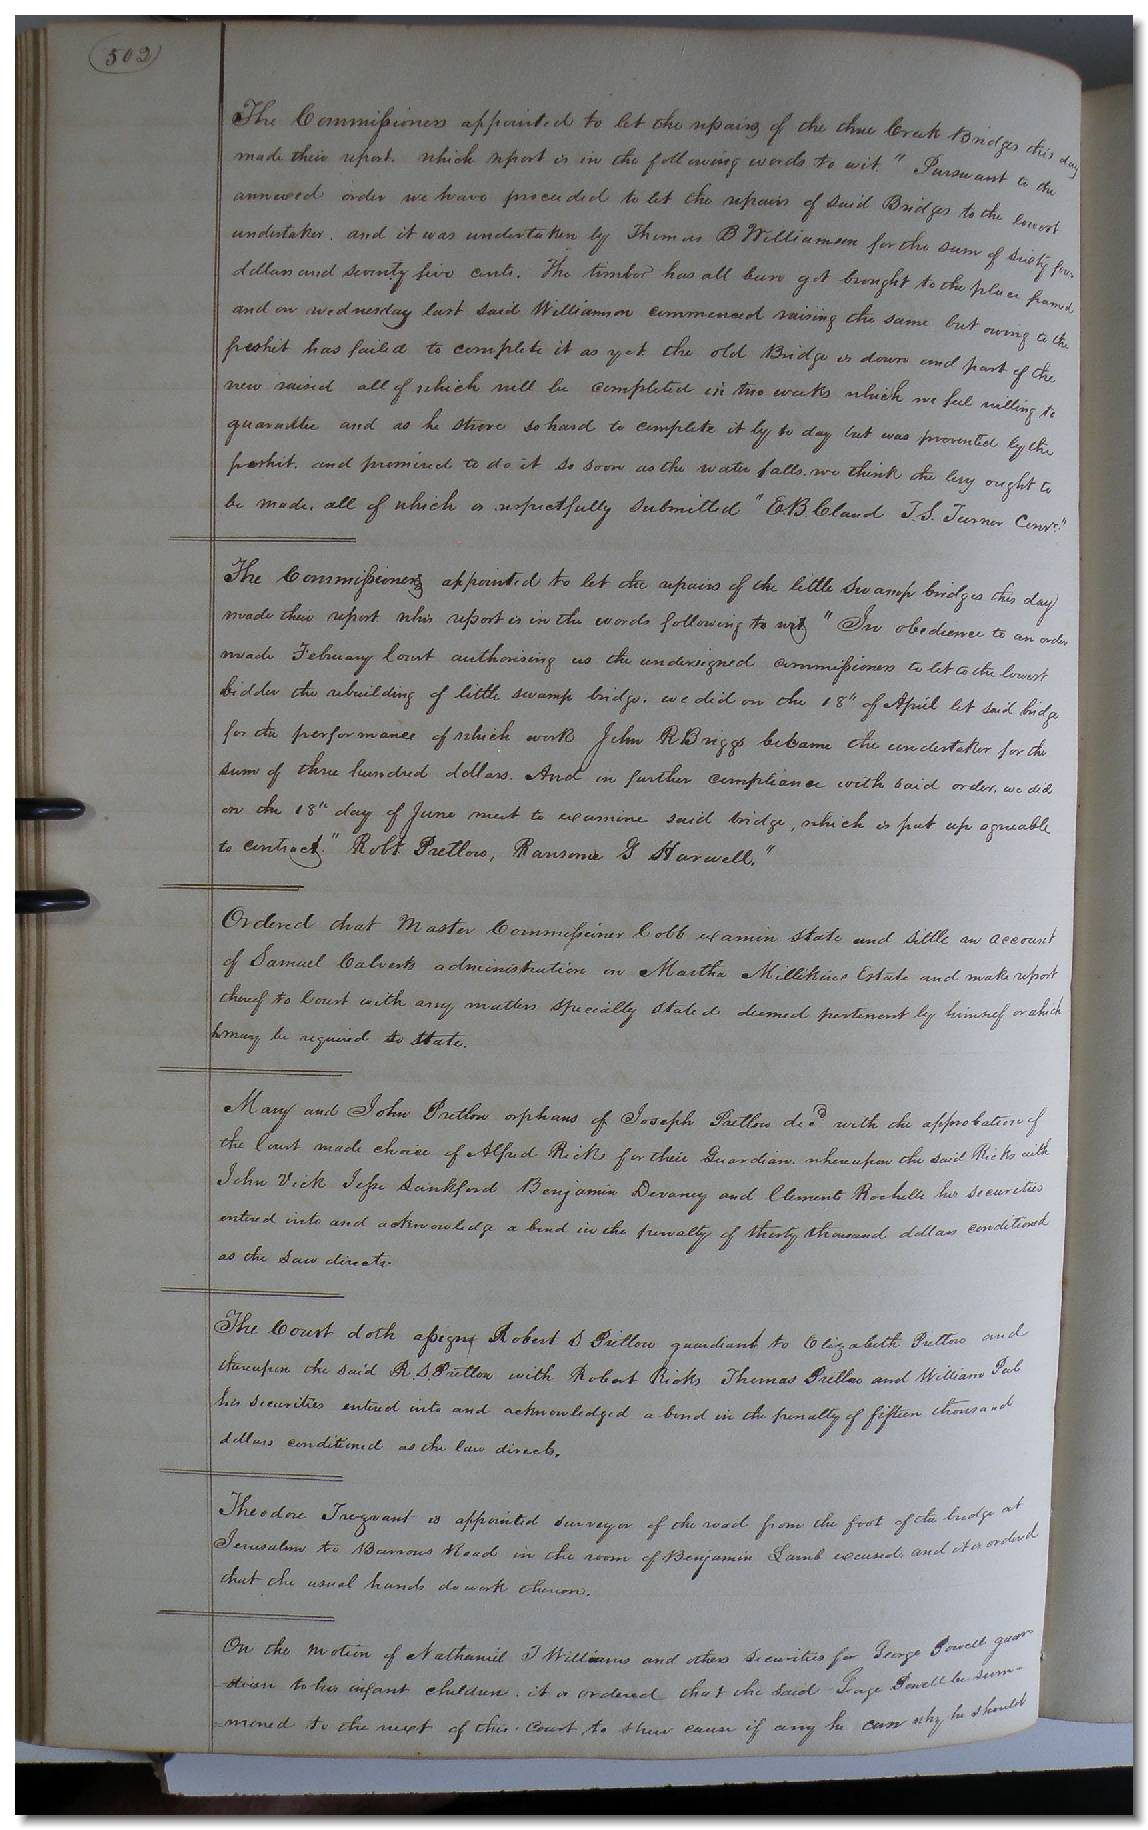 502
The Commissioners appointed to let the repairs of the three Creek Bridges this day
made their report. which report is in the following words to wit. " Pursuant to the
annexed order we have proceeded to let the repairs of said Bridges to the lowest
undertaker. and it was undertaken by Thomas B Williamson for the sum of sixty four
dollars and seventy five cents. The timber has all been got brought to the place framed
and on wednesday last said Williamson commenced raising the same but owing to the
freshit has failed to complete it as yet the old Bridge is down and part of the
new raised all of which will be completed in two weeks which we feel willing to
guarantee and as he strove so hard to complete it by to day but was prevented by the
freshit. and promised to do it so soon as the water falls. we think the levy ought to
be made. all of which is respectfully submitted " E.B. Claud T.S. Turner Comrs."
The Commissioners appointed to let the repairs of the little Swamp bridges this day
made their report whis report is in the words following to wit " In obedience to an order
made February Court authorising us the undersigned commissioners to let to the lowest
bidder the rebuilding of little swamp bridge. we did on the 18th of April let said bridge
for the performance of which work John R Briggs became the undertaker for the
sum of three hundred dollars. And in further compliance with said order, we did
on the 18th day of June meet to examine said bridge, which is put up agreable
to contract." Robt Pretlow, Ransome G Harwell."
Ordered that Master Commissioner Cobb examin state and settle an account
of Samuel Calverts administration on Martha Millikins Estate and make report
thereof to Court with any matters specially stated deemed pertenent by himself or which
may be required to state.
Mary and John Pretlow orphans of Joseph Pretlow decd with the approbation of
the Court made choice of Alfred Ricks for their Guardian. whereupon the said Ricks with
John Vick Jesse Lankford Benjamin Devaney and Clements Rochelle his securities
entered into and acknowledge a bond in the penalty of thirty thousand dollars conditioned
as the law directs.
The Court doth assign Robert S Pretlow guardian to Elizabeth Pretlow and
thereupon the said R.S. Pretlow with Robert Ricks Thomas Pretlow and William Peb
his securities entered into and acknowledged a bond in the penalty of fifteen thousand
dollars conditioned as the law directs.
Theodore Trezvant is appointed surveyor of the road from the foot of the bridge at
Jerusalem to Barrows Road in the room of Benjamin Lamb excused. and it is ordered
that the usual hands do work thereon.
On the motion of Nathaniel T Williams and others securities for George Powell guar-
-dian to his infant children. it is ordered that the said George Powell be sum-
-moned to the next of this Court to shew cause if any he can why he should